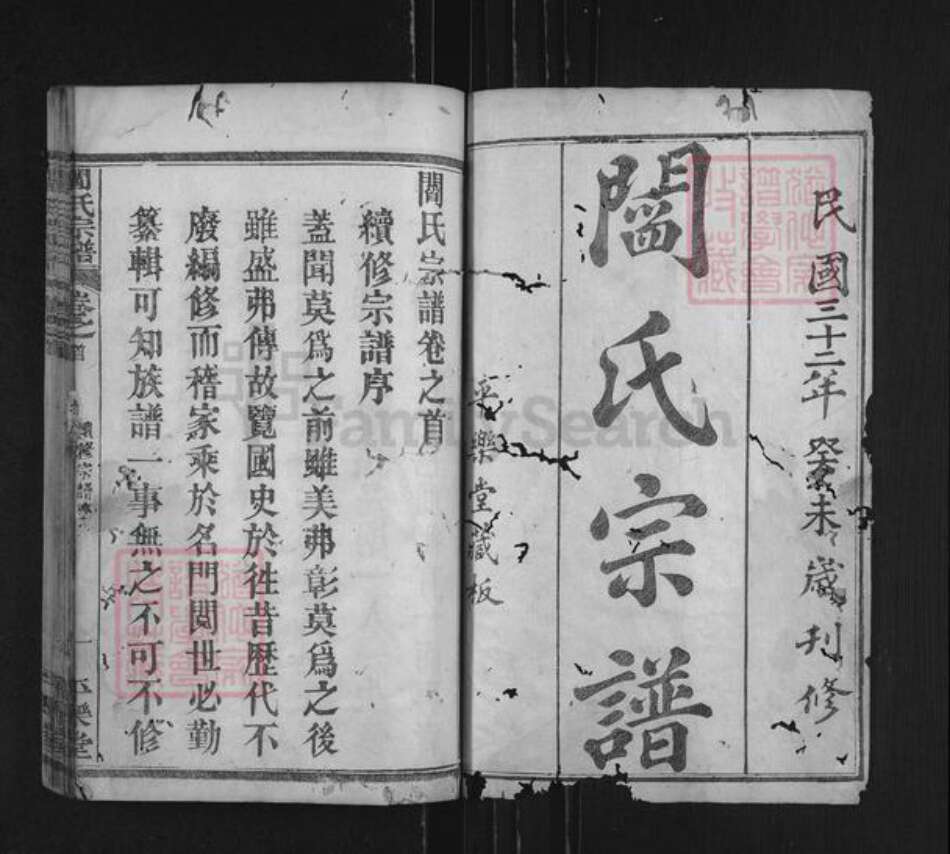 民國三十二年癸未歲刊修
閤氏宗譜
平樂堂藏板
閤氏宗譜卷之首
續修宗譜序
蓋聞莫爲之前雖美弗彰莫爲之後
雖盛弗傳故覽國史於徃昔歷代不
廢編修而稽家乘於名門閲世必勤
纂輯可知族譜一事無之不可不修
閤氏宗譜 卷之首
續修宗譜序
一
平樂堂
FamilySearch